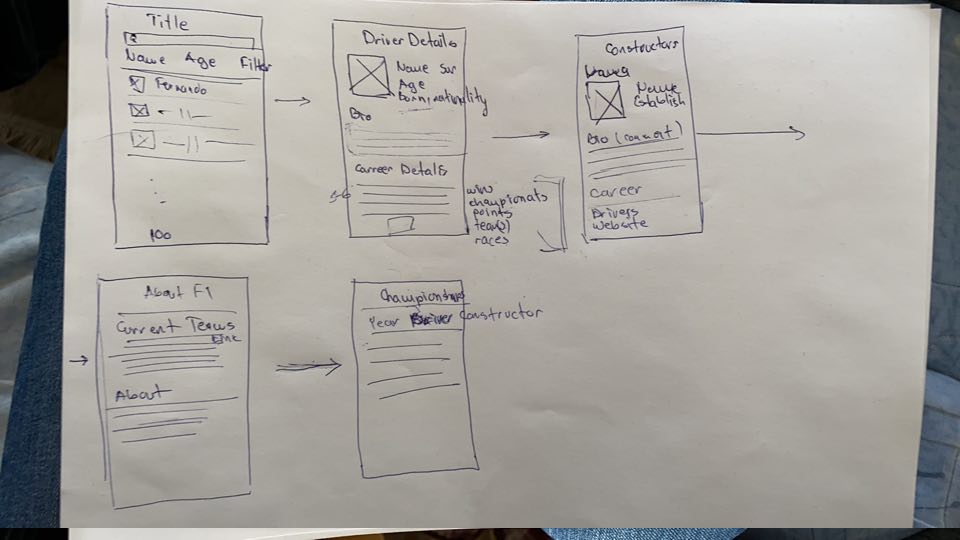 Title
Name Age Filter
Fernando
100
Driver Details
Name Sur
Age
nationality
Bio
Carreer Details
5-6
win
championats
points
team(s)
races
Constructors
Name
Establish
Bio (
career
Drivers
website
About F1
Current Teams
Link
About
Championships
Year Driver Constructor